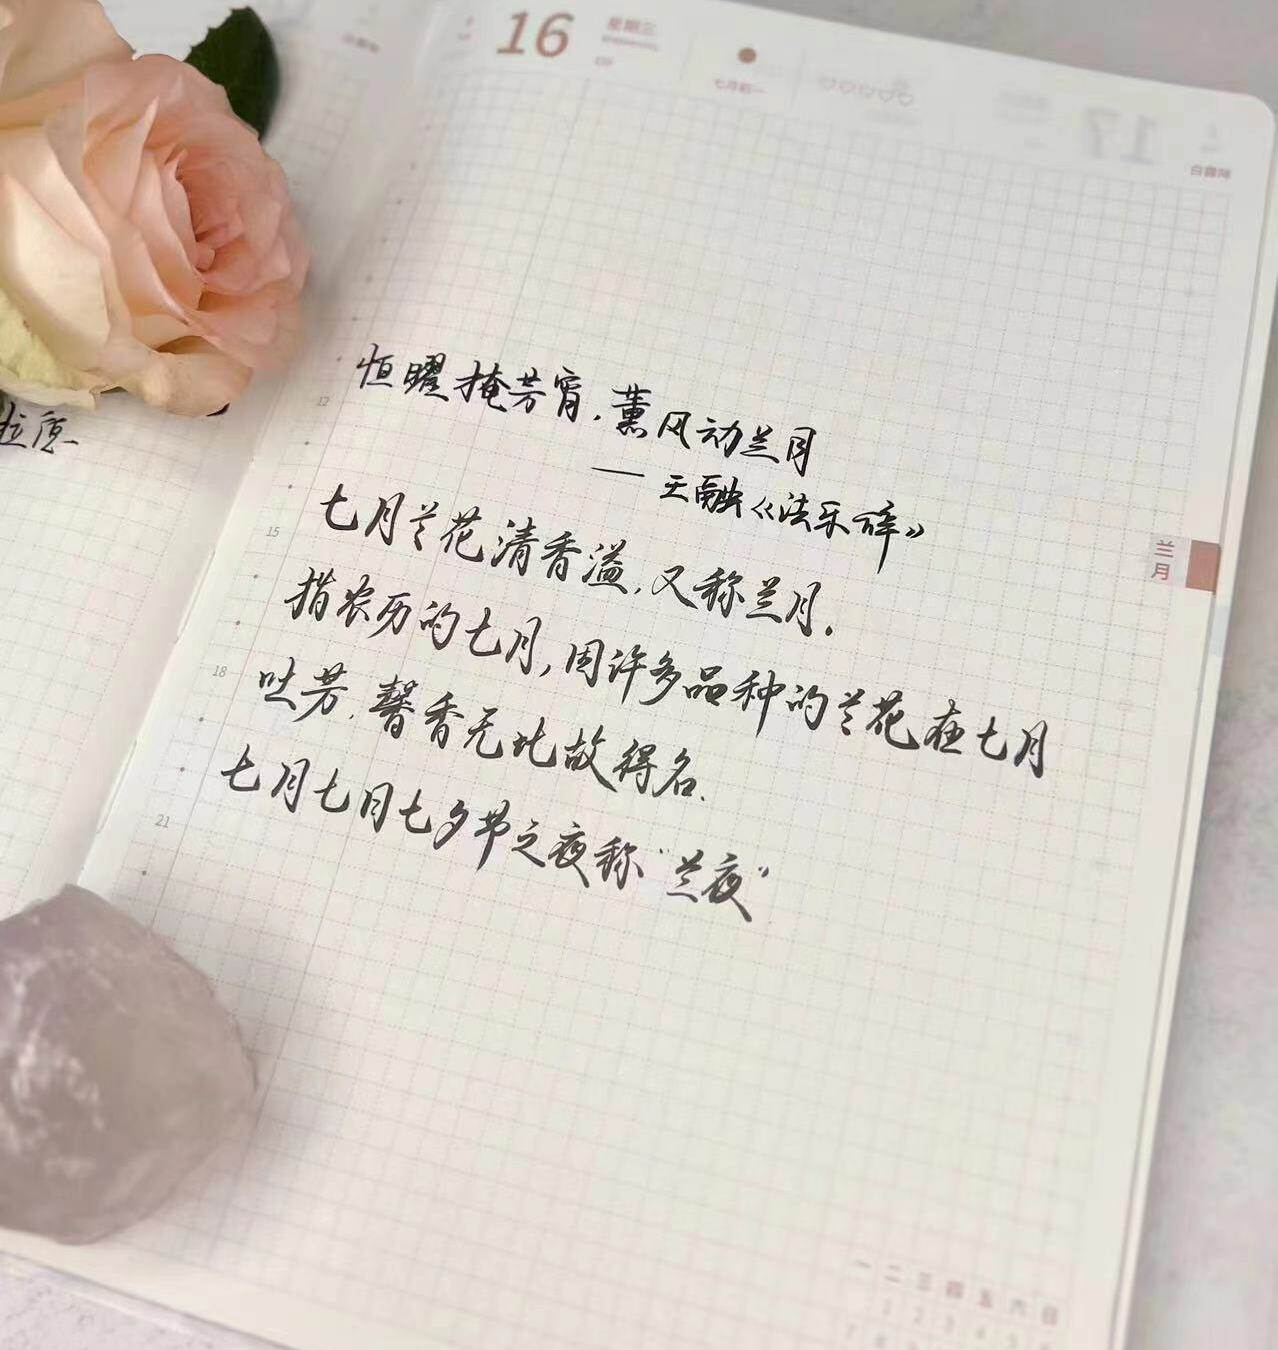 16
星期三
七月初一
17
恒曜掩芳宵，薰风动兰月
——王融《法乐辞》
七月兰花清香溢，又称兰月。
指农历的七月，因许多品种的兰花在七月
吐芳，馨香无比故得名。
七月七日七夕节之夜称“兰夜”
12
15
18
21
兰月
一 二 三 四 五 六 日
1 2 3 4 5 6